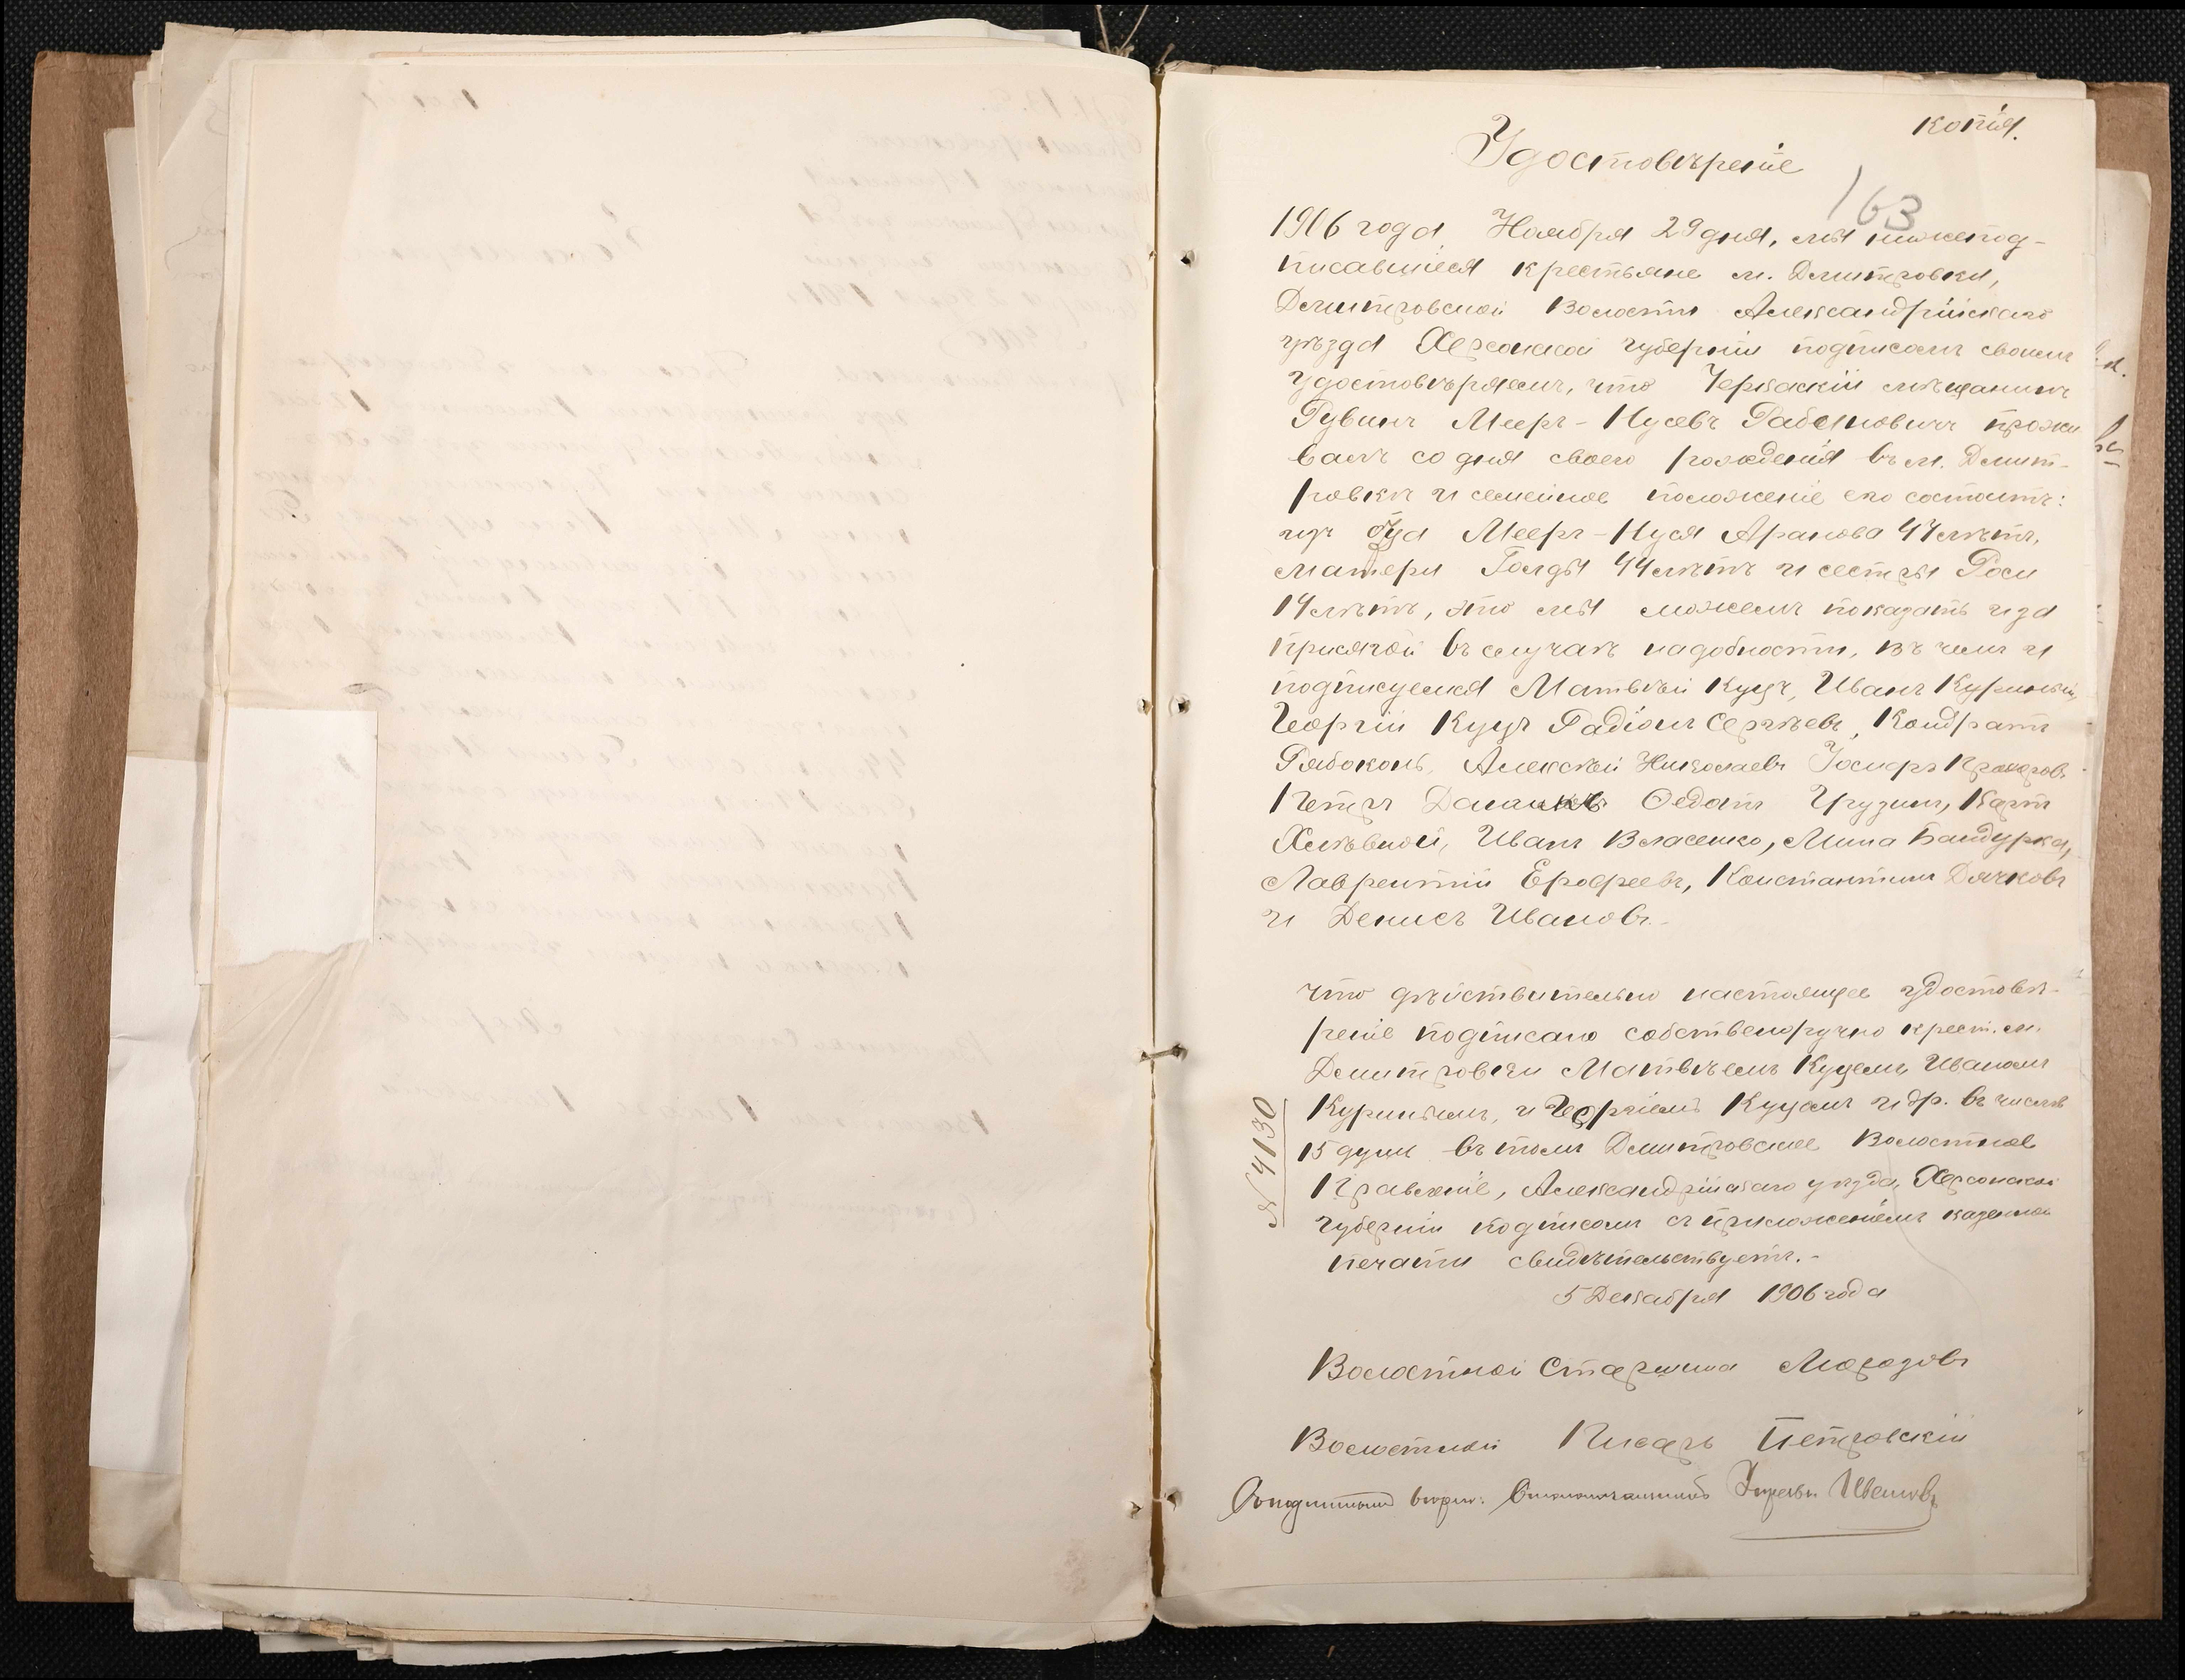 Копія.
Удостовѣреніе
163
1906 года Ноября 29 дня, мы нижепод-
писавшіеся крестьяне м. Дмитровки,
Дмитровской Волости Александрійскаго
уѣзда Херсонской губерніи подписомъ своимъ
удостовѣряемъ, что Черкаскій мѣщанинъ
Рувинъ Мееръ-Нусевъ Рабиновичъ прожи
валъ со дня своего рожденія въ м. Дмит-
ровкѣ и семейное положеніе его состоитъ:
изъ отца Мееръ-Нуся Аранова 47 лѣтъ,
матери Голды 44 лѣтъ и сестры Роси
14 лѣтъ, это мы можемъ показать и за
присягой въ случаѣ надобности, въ чемъ и
подписуемся Матвѣй Куцъ, Иванъ Куринный,
Георгій Куцъ Радіонъ Сергѣевъ, Кондратъ
Рябоконь, Алексѣй Николаевъ Іосифъ
Петръ Федотъ Грузинъ, Карпъ
Хлѣвной, Иванъ Власенко, Мина Бандурка,
Лаврентій Ерофеевъ, Константинъ Дячковъ
и Денисъ Ивановъ.-
что дѣйствительно настоящее удостовѣ-
реніе подписано собственоручно крест. м.
Дмитровки Матвѣемъ Куцемъ, Иваномъ
Куриннымъ, и Георгіемъ Куцемъ и др. въ числѣ
15 душъ въ томъ Дмитровское Волостное
Правленіе, Александрійскаго уѣзда, Херсонской
губерніи подписомъ съ приложеніемъ казенной
печати свидѣтельствуетъ.-
№ 4130
5 Декабря 1906 года
Волостной Старшина Морозовъ
Волостной Писарь Петровскій